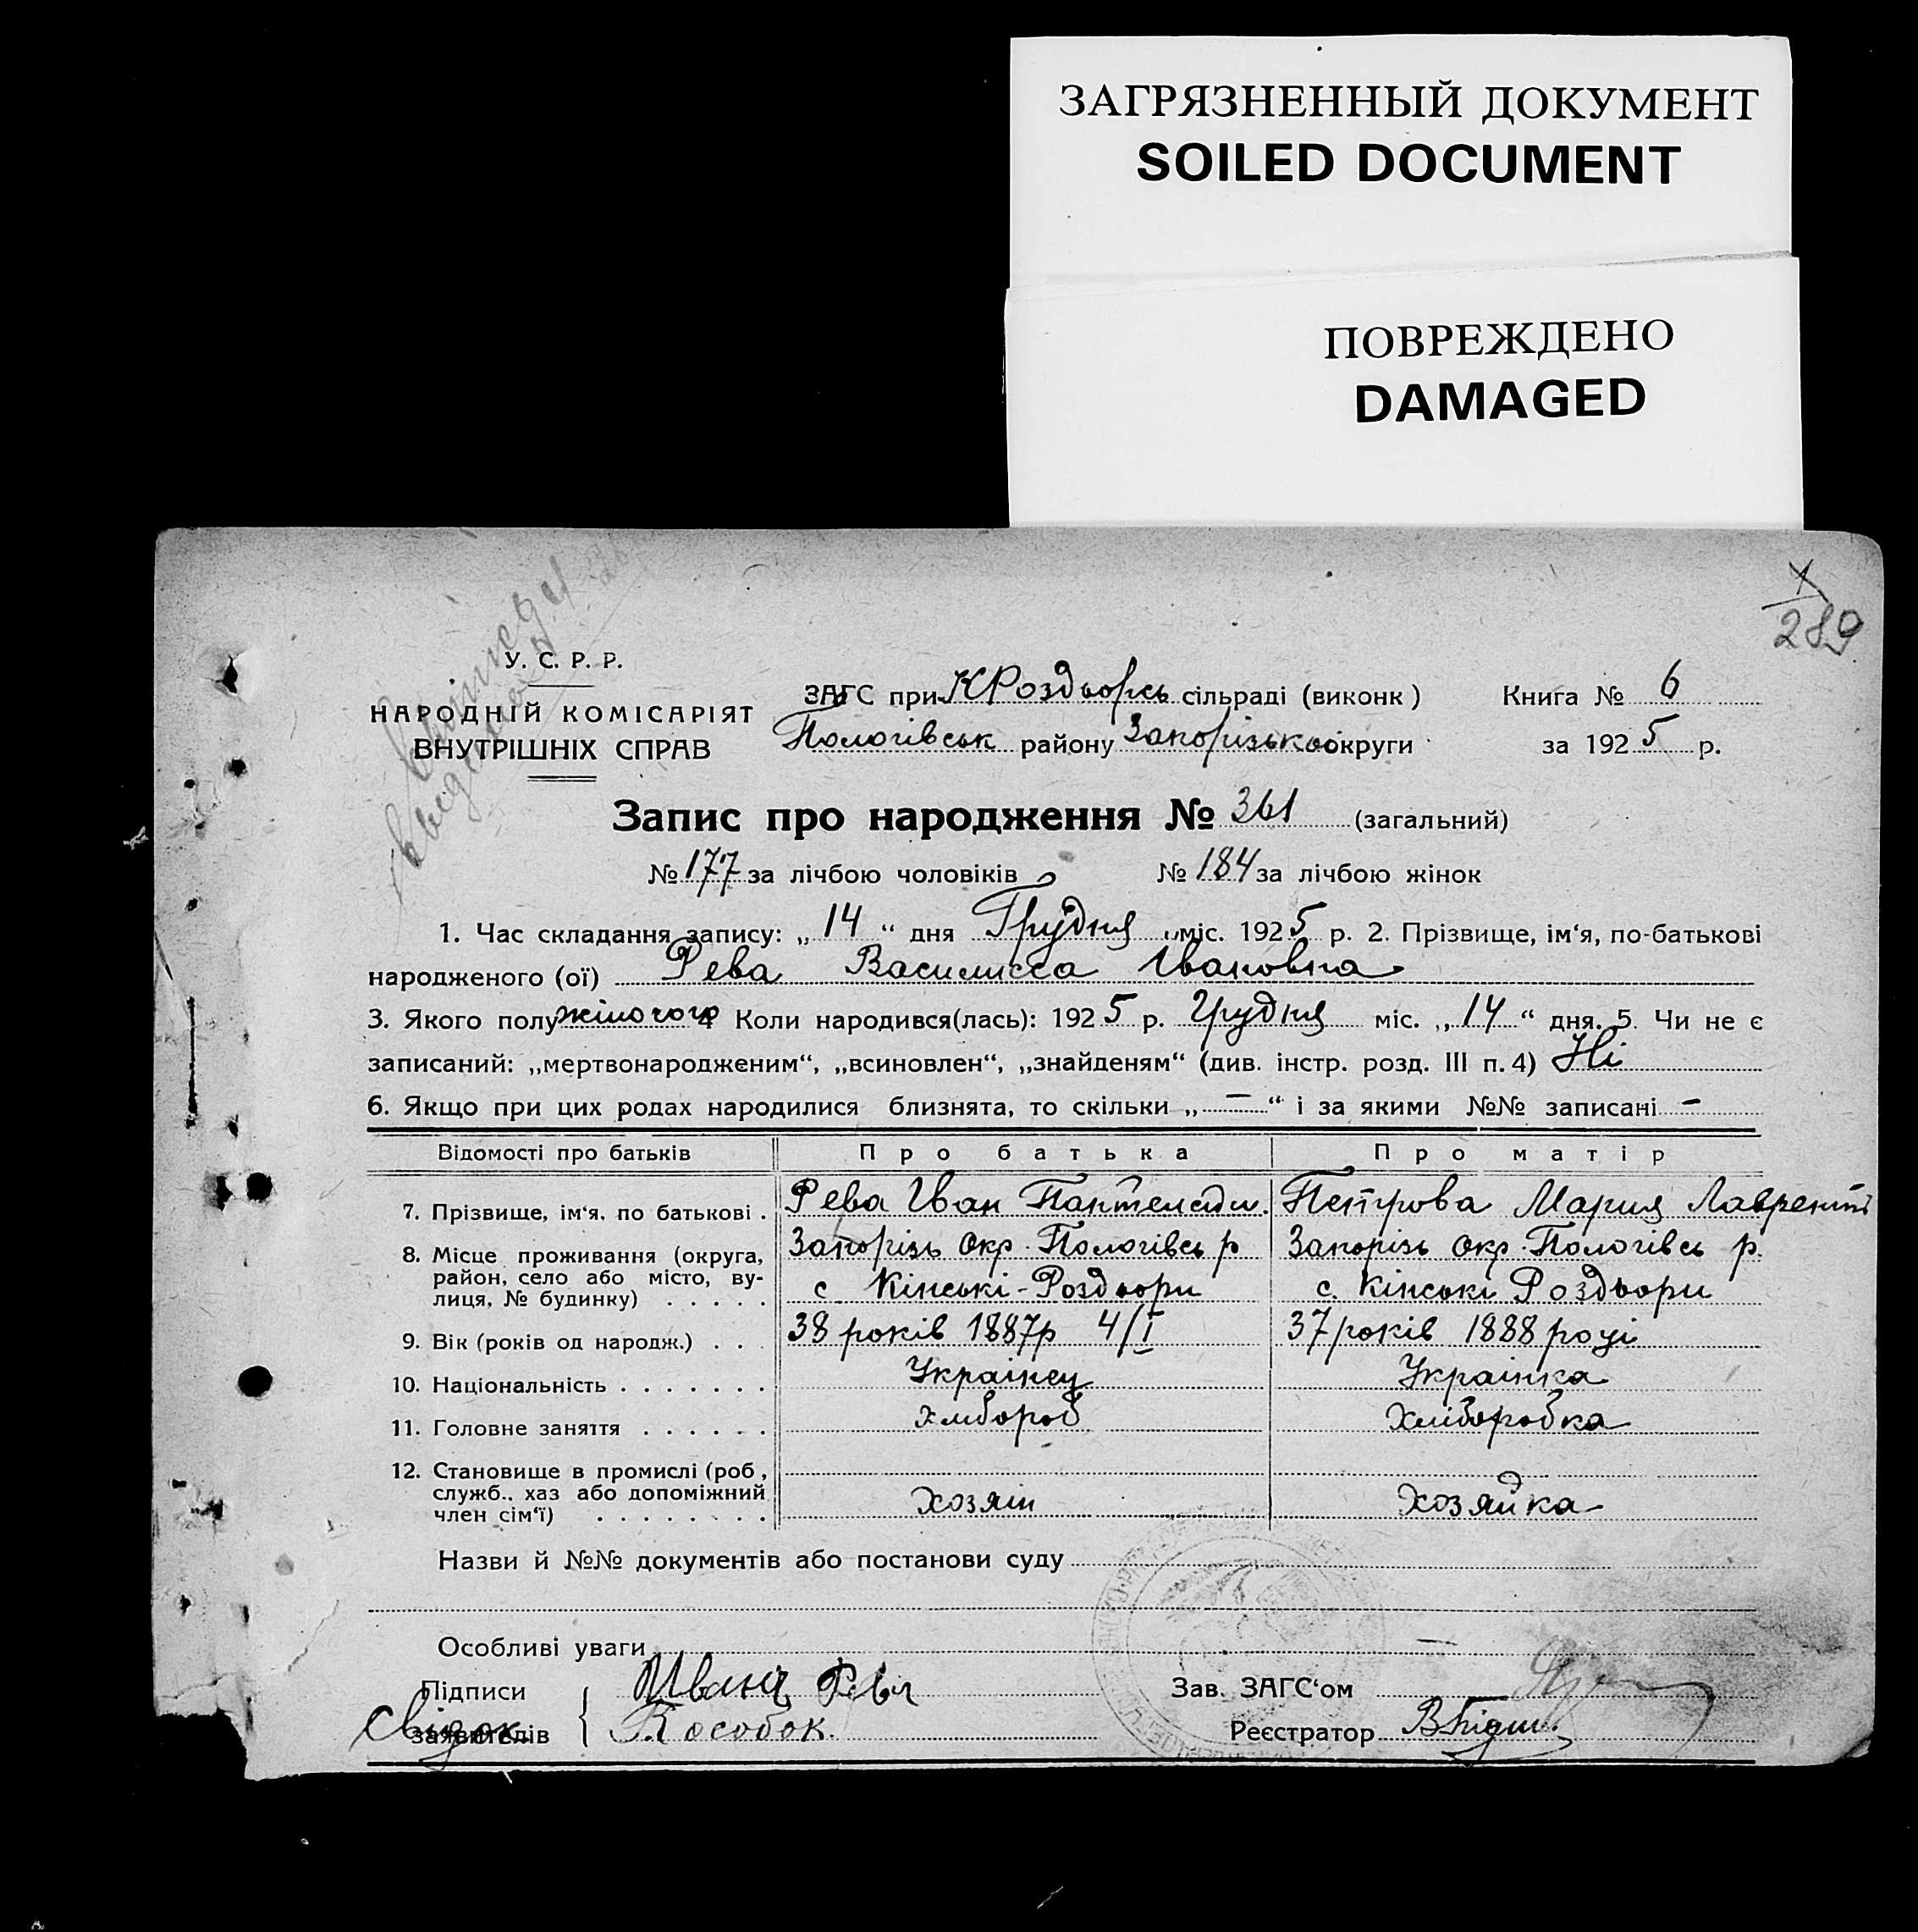 ЗАГРЯЗНЕННЫЙ ДОКУМЕНТ
SOILED DOCUMENT
ПОВРЕЖДЕНО
DAMAGED
289
У. С. Р. Р.
НАРОДНІЙ КОМІСАРІЯТ
ВНУТРІШНІХ СПРАВ
ЗАГС при КРоздорсь сільраді (виконк) Книга № 6
Пологівськ району Запорізькоі округи за 1925 р.
Запис про народження № 361 (загальний)
№ 177 за лічбою чоловіків № 184 за лічбою жінок
1. Час складання запису: „14“ дня Грудня міс. 1925 р. 2. Прізвище, ім‘я, по-батькові
народженого (ої) Рева Василисса Івановна
3. Якого полу жіночого 4 Коли народився(лась): 1925 р. Грудня міс. „14“ дня. 5. Чи не є
записаний: „мертвонародженим“, „всиновлен“, „знайденям“ (див. інстр. розд. III п. 4) Ні
6. Якщо при цих родах народилися близнята, то скільки „—“ і за якими №№ записані -
Відомості про батьків Про батька Про матір
7. Прізвище, ім‘я, по батькові . Рева Іван Пантелейм. Петрова Мария Лаврент
8. Місце проживання (округа, Запорізь Окр. Пологівсь р Запорізь Окр. Пологівсь р.
район, село або місто, ву-
лиця, № будинку) . . . . . с. Кінські-Роздори с. Кінські Роздори
9. Вік (років од народж.) . . . 38 років 1887р 4/I 37 років 1888 році
10. Національність . . . . . . . Українец Українка
11. Головне заняття . . . . . . Хлібороб Хліборобка
12. Становище в промислі (роб,
служб., хаз або допоміжний Хозяін Хозяйка
член сім‘ї) . . . . . . . .
Назви й №№ документів або постанови суду
Особливі уваги —
Підписи Иван Рева Зав. ЗАГС‘ом
Свідок заявителів Кособок. Реєстратор